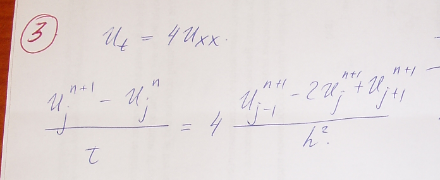 3
u_t = 4u_xx.
(u_j^{n+1} - u_j^n) / τ = 4 (u_{j-1}^{n+1} - 2u_j^{n+1} + u_{j+1}^{n+1}) / h².